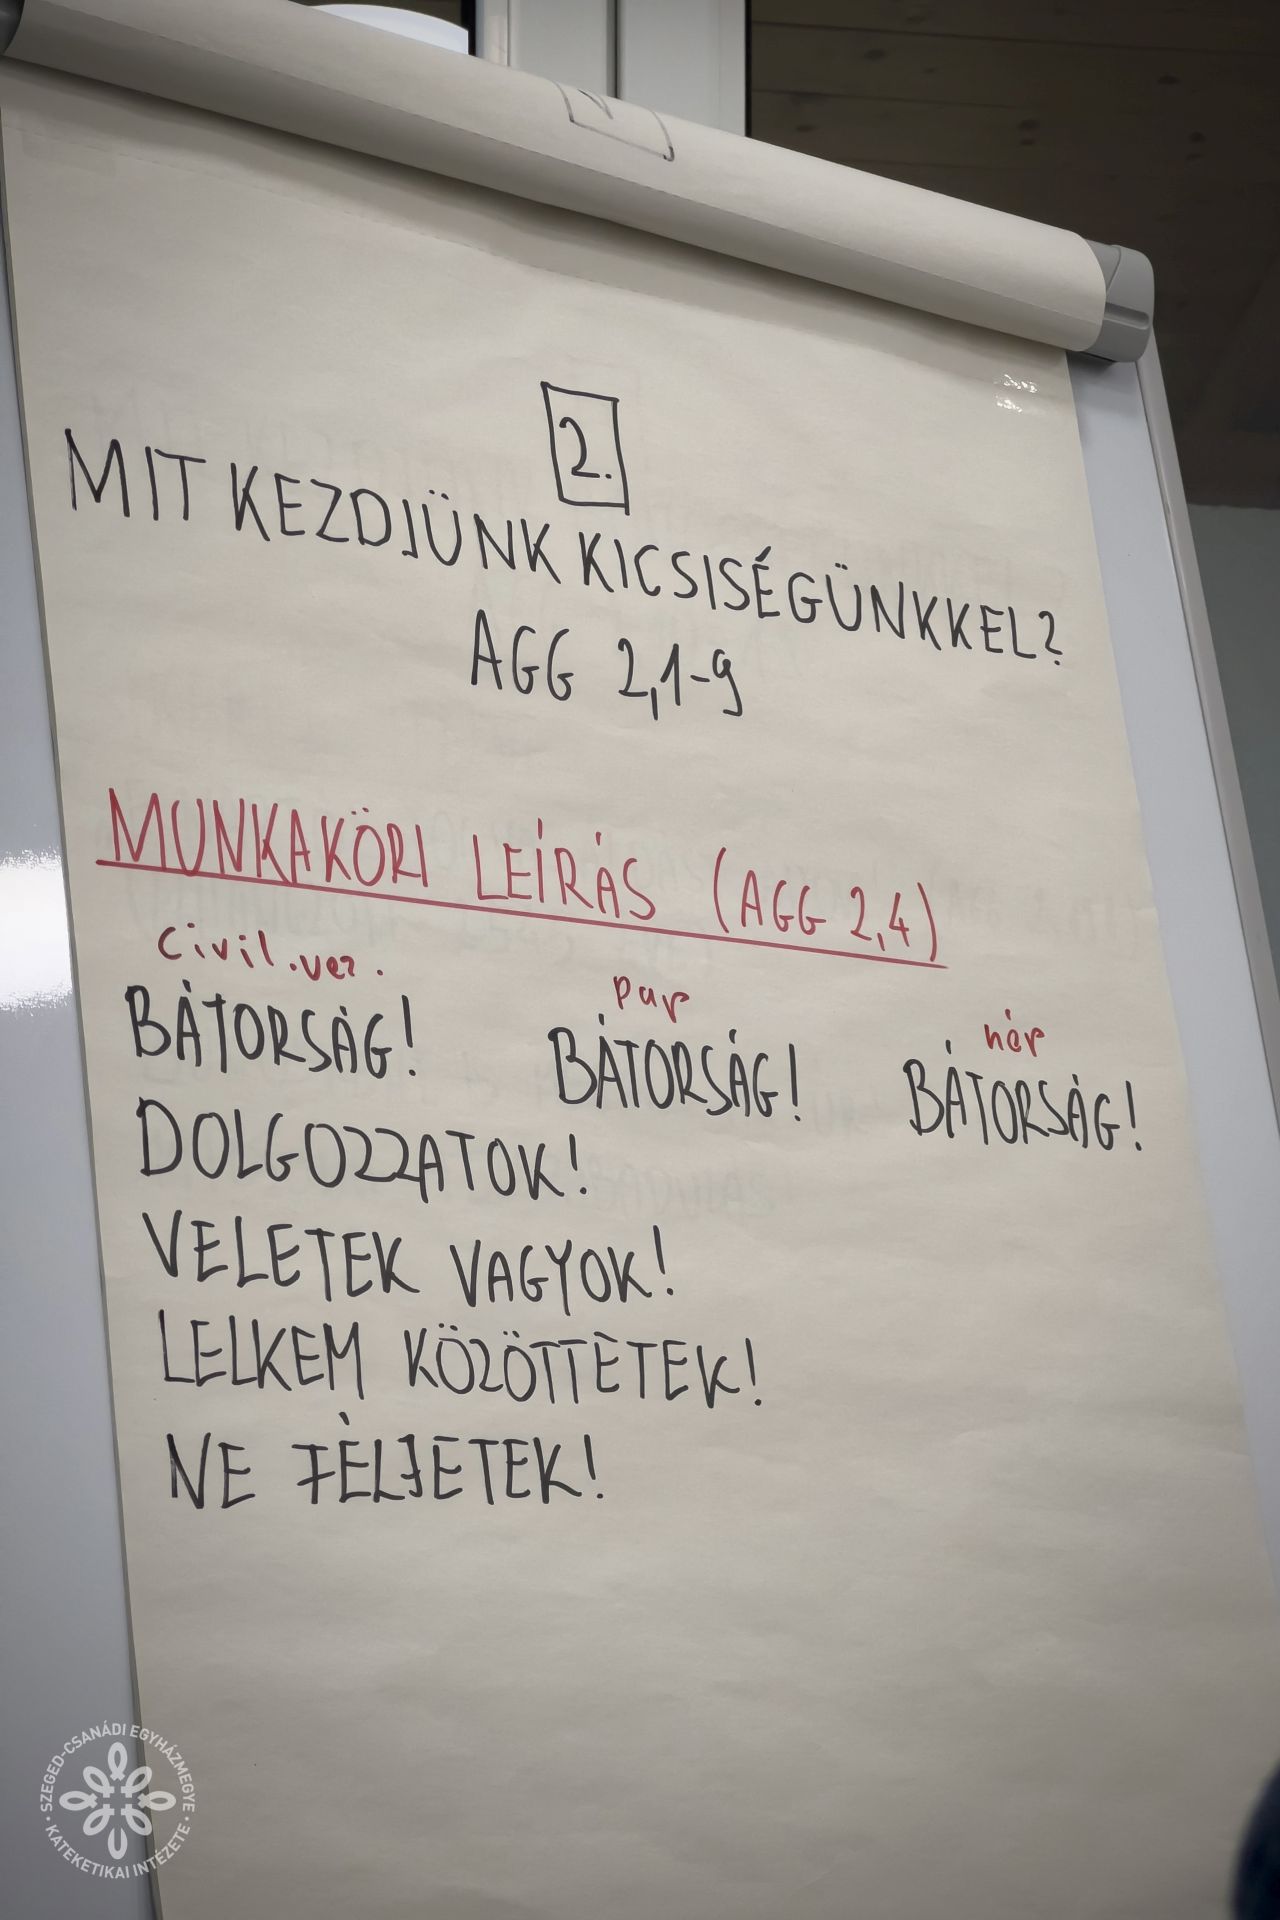 2.
MIT KEZDJÜNK KICSISÉGÜNKKEL?
AGG 2,1-9
MUNKAKÖRI LEÍRÁS (AGG 2,4)
civil.vez. pap nép
BÁTORSÁG! BÁTORSÁG! BÁTORSÁG!
DOLGOZZATOK!
VELETEK VAGYOK!
LELKEM KÖZÖTTETEK!
NE FÉLJETEK!
SZEGED-CSANÁDI EGYHÁZMEGYE
KATEKETIKAI INTÉZETE